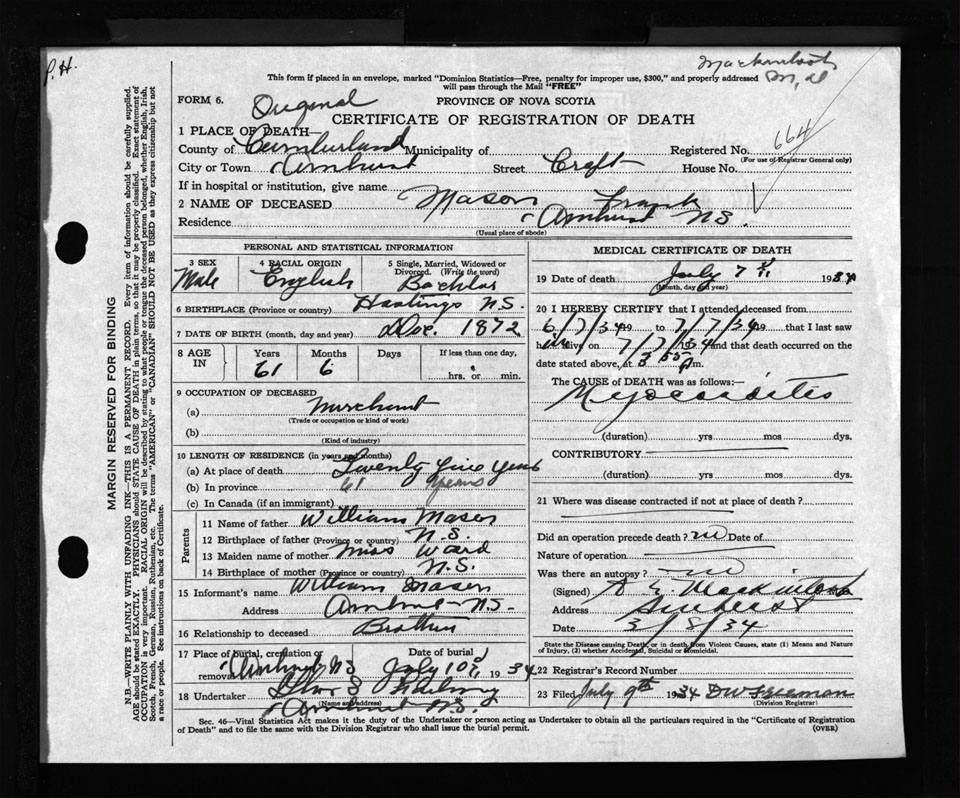 P. H.
Mackintosh
This form if placed in an envelope, marked "Dominion Statistics—Free, penalty for improper use, $300," and properly addressed
will pass through the Mail "FREE"
FORM 6.
Original
PROVINCE OF NOVA SCOTIA
CERTIFICATE OF REGISTRATION OF DEATH
1 PLACE OF DEATH—
664
County of Cumberland Municipality of Registered No.
(For use of Registrar General only)
City or Town Amherst Street Croft House No.
If in hospital or institution, give name
2 NAME OF DECEASED Mason Frank
Residence Amherst N.S.
(Usual place of abode)
PERSONAL AND STATISTICAL INFORMATION
3 SEX Male
4 RACIAL ORIGIN English
5 Single, Married, Widowed or Divorced. (Write the word) Bachlor
6 BIRTHPLACE (Province or country) Hastings N.S.
7 DATE OF BIRTH (month, day and year) Dec. 1872
8 AGE IN Years 61 Months 6 Days If less than one day, hrs. or min.
9 OCCUPATION OF DECEASED
(a) Merchant
(Trade or occupation or kind of work)
(b)
(Kind of industry)
10 LENGTH OF RESIDENCE (in years and months)
(a) At place of death Twenty five years
(b) In province 61 years
(c) In Canada (if an immigrant)
Parents
11 Name of father William Mason
12 Birthplace of father (Province or country) N.S.
13 Maiden name of mother Miss Ward
14 Birthplace of mother (Province or country) N.S.
15 Informant's name William Mason
Address Amherst N.S.
16 Relationship to deceased Brother
17 Place of burial, cremation or removal Amherst N S
Date of burial July 10th 1934
18 Undertaker
(Name and address)
Amherst N.S.
MEDICAL CERTIFICATE OF DEATH
19 Date of death July 7th 1934
(Month, day and year)
20 I HEREBY CERTIFY that I attended deceased from
6/7/34 19 to 7/7/34 19 that I last saw
him alive on 7/7/34 and that death occurred on the
date stated above, at 3 55 P m.
The CAUSE OF DEATH was as follows:—
Myocarditis
(duration) yrs mos dys.
CONTRIBUTORY
(duration) yrs mos dys.
21 Where was disease contracted if not at place of death?
Did an operation precede death? no Date of
Nature of operation
Was there an autopsy? no
(Signed) A E Mackintosh
Address Amherst
Date 3/8/34
State the Disease causing Death, or in death from Violent Causes, state (1) Means and Nature
of Injury, (2) whether Accidental, Suicidal or Homicidal.
22 Registrar's Record Number
23 Filed July 9th 1934 D W Freeman
(Division Registrar)
Sec. 46—Vital Statistics Act makes it the duty of the Undertaker or person acting as Undertaker to obtain all the particulars required in the "Certificate of Registration
of Death" and to file the same with the Division Registrar who shall issue the burial permit.
(OVER)
MARGIN RESERVED FOR BINDING
N.B.—WRITE PLAINLY WITH UNFADING INK—THIS IS A PERMANENT RECORD. Every item of information should be carefully supplied.
AGE should be stated EXACTLY. PHYSICIANS should STATE CAUSE OF DEATH in plain terms, so that it may be properly classified. Exact statement of
OCCUPATION is very important. RACIAL ORIGIN will be described by stating to what people or tongue the deceased person belonged, whether English, Irish,
Scotch, French, German, Russian, Ruthenian, etc. The terms "AMERICAN" or "CANADIAN" SHOULD NOT BE USED as they express citizenship but not
a race or people. See instructions on back of Certificate.